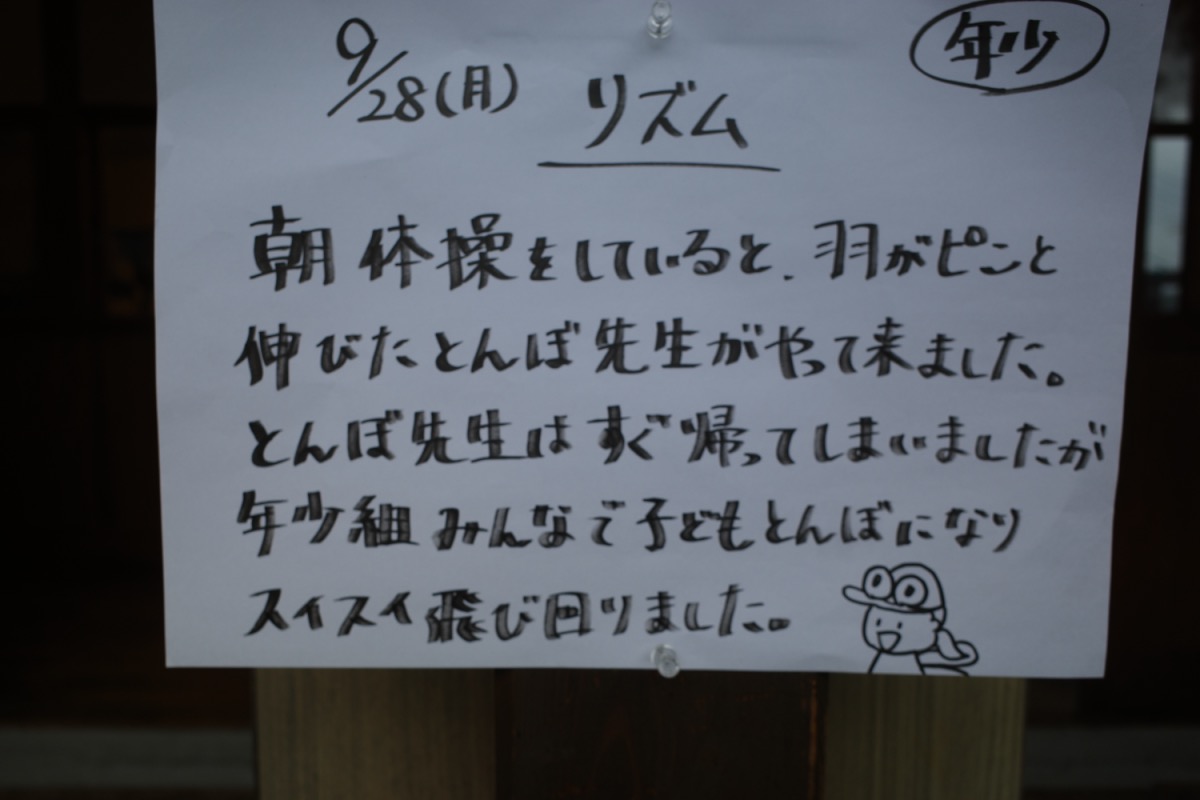 年少
9/28(月) リズム
朝体操をしていると、羽がピンと
伸びたとんぼ先生がやって来ました。
とんぼ先生はすぐ帰ってしまいましたが
年少組みんなで子どもとんぼになり
スイスイ飛び回りました。